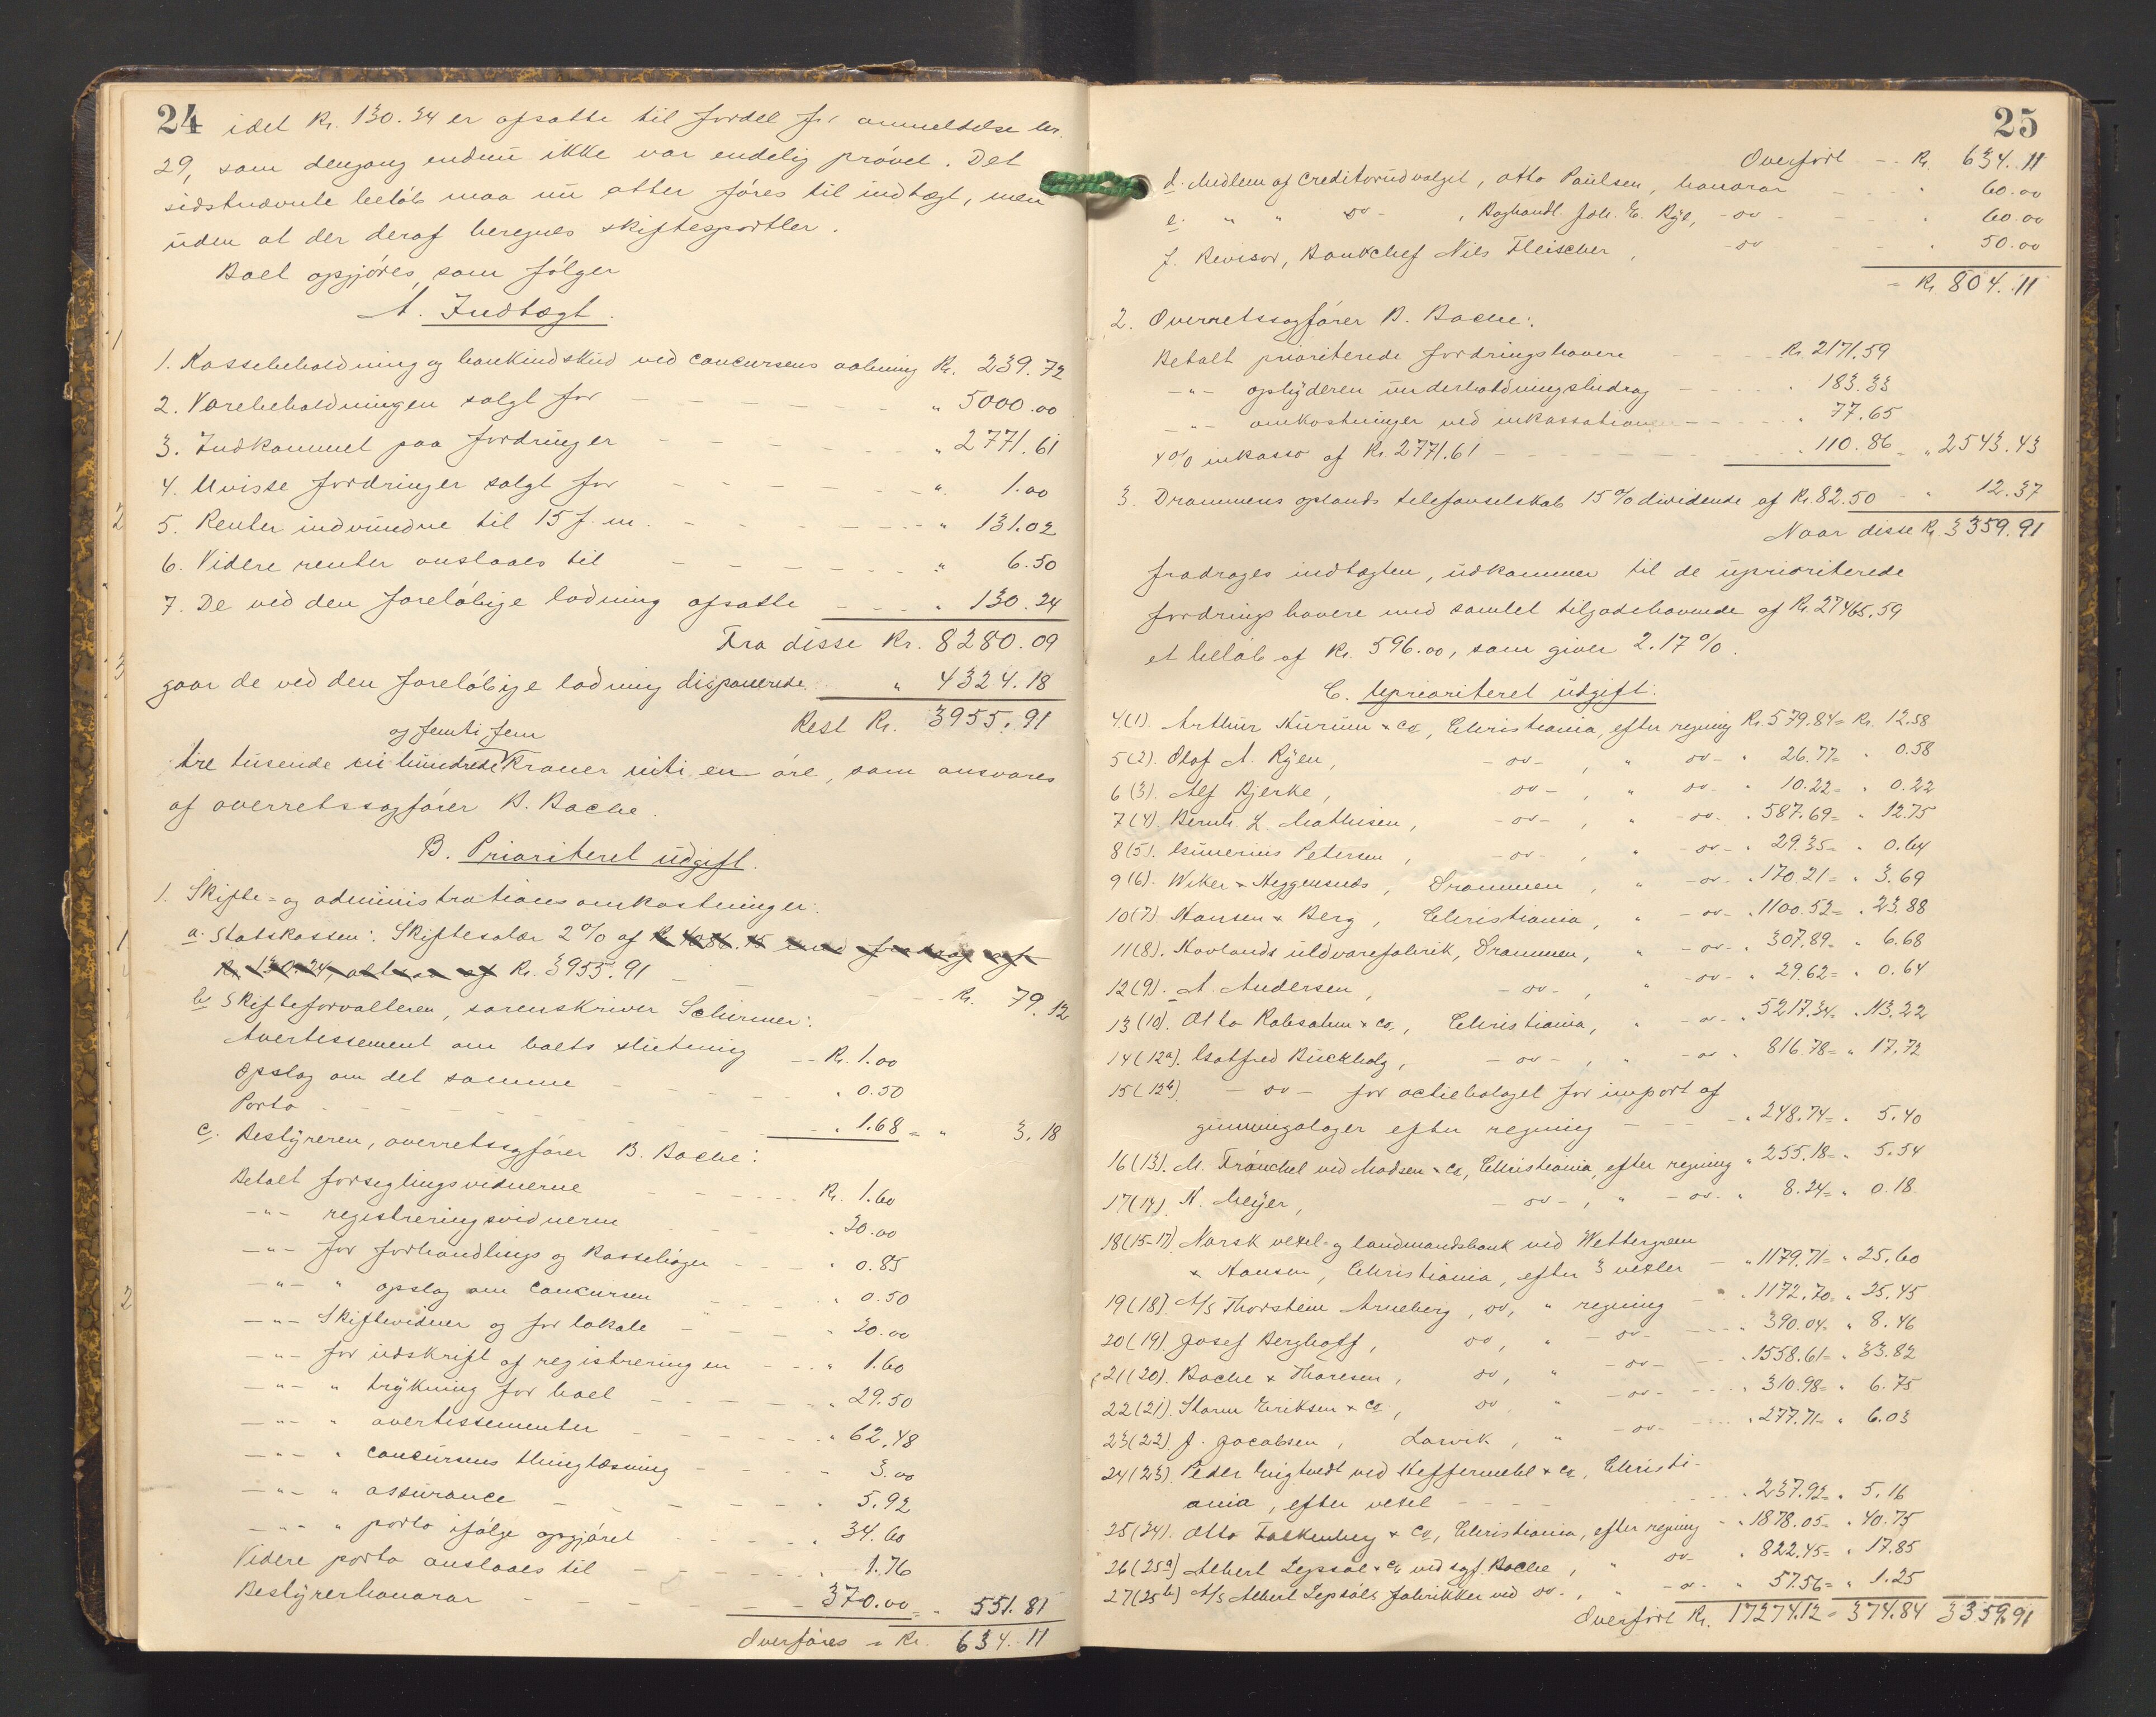 24 idet Kr. 130.24 er afsatte til fordel for anmeldelse nr.
29, som dengang endnu ikke var endelig prøvet. Det
sidstnævnte beløb maa nu atter føres til indtægt, men
uden at der deraf beregnes skiftesportler.
Boet opgjøres som følger
A. Indtægt.
1. Kassebeholdning og bankindskud ved concursens aabning Kr. 239.72
2. Varebeholdningen solgt for " 5000.00
3. Indkommet paa fordringer " 2771.61
4. Uvisse fordringer solgt for " 1.00
5. Renter indvundne til 15 f. m. " 131.02
6. Videre renter anslaaes til " 6.50
7. De ved den foreløbige lodning afsatte " 130.24
Fra disse Kr. 8280.09
gaar de ved den foreløbige lodning disponerede " 4324.18
Rest Kr. 3955.91
og femti fem
tre tusende ni hundrede Kroner niti en øre, som ansvares
af overretssagfører B. Bache.
B. Prioriteret udgift.
1. Skifte- og administrationsomkostninger:
a. Statskassen: Skiftesalær 2% af Kr. 4086.15 med fradrag af
Kr. 130.24, altsaa af Kr. 3955.91 Kr. 79.12
b. Skifteforvalteren, sorenskriver Schirmer:
Avertissement om boets slutning Kr. 1.00
Opslag om det samme " 0.50
Porto " 1.68 = " 3.18
c. Bestyreren, overretssagfører B. Bache:
Betalt forseglingsvidnerne Kr. 1.60
-"- registreringsvidnerne " 20.00
-"- for forhandlings og Kassebøger " 0.85
-"- " opslag om concursen " 0.50
-"- Skiftevidner og for lokale " 20.00
-"- for udskrift af registreringen " 1.60
-"- " trykning for boet " 29.50
-"- " avertissementer " 62.48
-"- " concursens thinglæsning " 3.00
-"- " assurance " 5.92
-"- " porto ifølge opgjøret " 34.60
Videre porto anslaaes til " 1.76
Bestyrerhonorar " 370.00 = " 551.81
Overføres = Kr. 634.11
25
Overført Kr. 634.11
d. Medlem af Creditorudvalget, Otto Paulsen, honorar " 60.00
e. " " do - , Boghandl. Joh. E. Bye, - do - " 60.00
f. Revisor, Bankchef Nils Fleischer, - do " 50.00
= Kr. 804.11
2. Overretssagfører B. Bache:
Betalt prioriterede fordringshavere Kr. 2171.59
-"- opbyderen underholdningsbidrag " 183.33
-"- omkostninger ved inkassationen " 77.65
4% inkasso af Kr. 2771.61 " 110.86 = " 2543.43
3. Drammens oplands telefonselskab 15% dividende af Kr. 82.50 " 12.37
Naar disse Kr. 3359.91
fradrages indtægten, udkommer til de uprioriterede
fordringshavere med samlet tilgodehavende af Kr. 27465.59
et beløb af Kr. 596.00, som giver 2.17%.
C. Uprioriteret udgift.
4(1). Arthur Kurum & Co, Christiania, efter regning Kr. 579.84 = Kr. 12.58
5(2). Olaf A. Ryen, - do - , " do - " 26.77 = " 0.58
6(3). Alf Bjerke, - do - , " do - " 10.22 = " 0.22
7(4). Bernh. L. Mathisen, - do - , " - do - " 587.69 = " 12.75
8(5). Gunerius Petersen, - do - , " - do - " 29.35 = " 0.64
9(6). Wiker & Heggensnæs, Drammen, " - do - " 170.21 = " 3.69
10(7). Hansen & Berg, Christiania, " - do - " 1100.52 = " 23.88
11(8). Hovlands uldvarefabrik, Drammen, " - do - " 307.89 = " 6.68
12(9). A. Andersen, - do - , " - do - " 29.62 = " 0.64
13(10). Otto Robsahm & Co., Christiania, " - do - " 5217.34 = " 113.22
14(12a). Gotfred Buckholz, - do - , " - do " 816.78 = " 17.72
15(12b). - do - for actiebolaget for import af
gummigaloger efter regning " 248.74 = " 5.40
16(13). M. Fränckel ved Madsen & Co, Christiania, efter regning " 255.18 = " 5.54
17(14). N. Meyer, - do - , " - do - " 8.24 = " 0.18
18(15-17). Norsk vexel- og landmandsbank ved Wettergreen
& Hansen, Christiania, efter 3 vexler " 1179.71 = " 25.60
19(18). A/S Thorstein Arneberg, do, " regning " 1172.70 = " 25.45
20(19). Josef Berghoff, do, " - do - " 390.04 = " 8.46
21(20). Bache & Thoresen, do, " - do - " 1558.61 = " 33.82
22(21). Storm Eriksen & Co, do, " - do - " 310.98 = " 6.75
23(22). J. Jacobsen, Larvik, " - do - " 277.71 = " 6.03
24(23). Peder Engtvedt ved Heffermehl & Co, Christi-
ania, efter vexel " 237.92 = " 5.16
25(24). Otto Falkenberg & Co, Christiania, efter regning " 1878.05 = " 40.75
26(25a) Albert Lepsøe & Co ved sagf. Bache, " do - " 822.45 = " 17.85
27(25b) A/S Albert Lepsøes fabrikker ved do - , " - do - " 57.56 = " 1.25
Overført Kr. 17274.12 = 374.84 3359.91